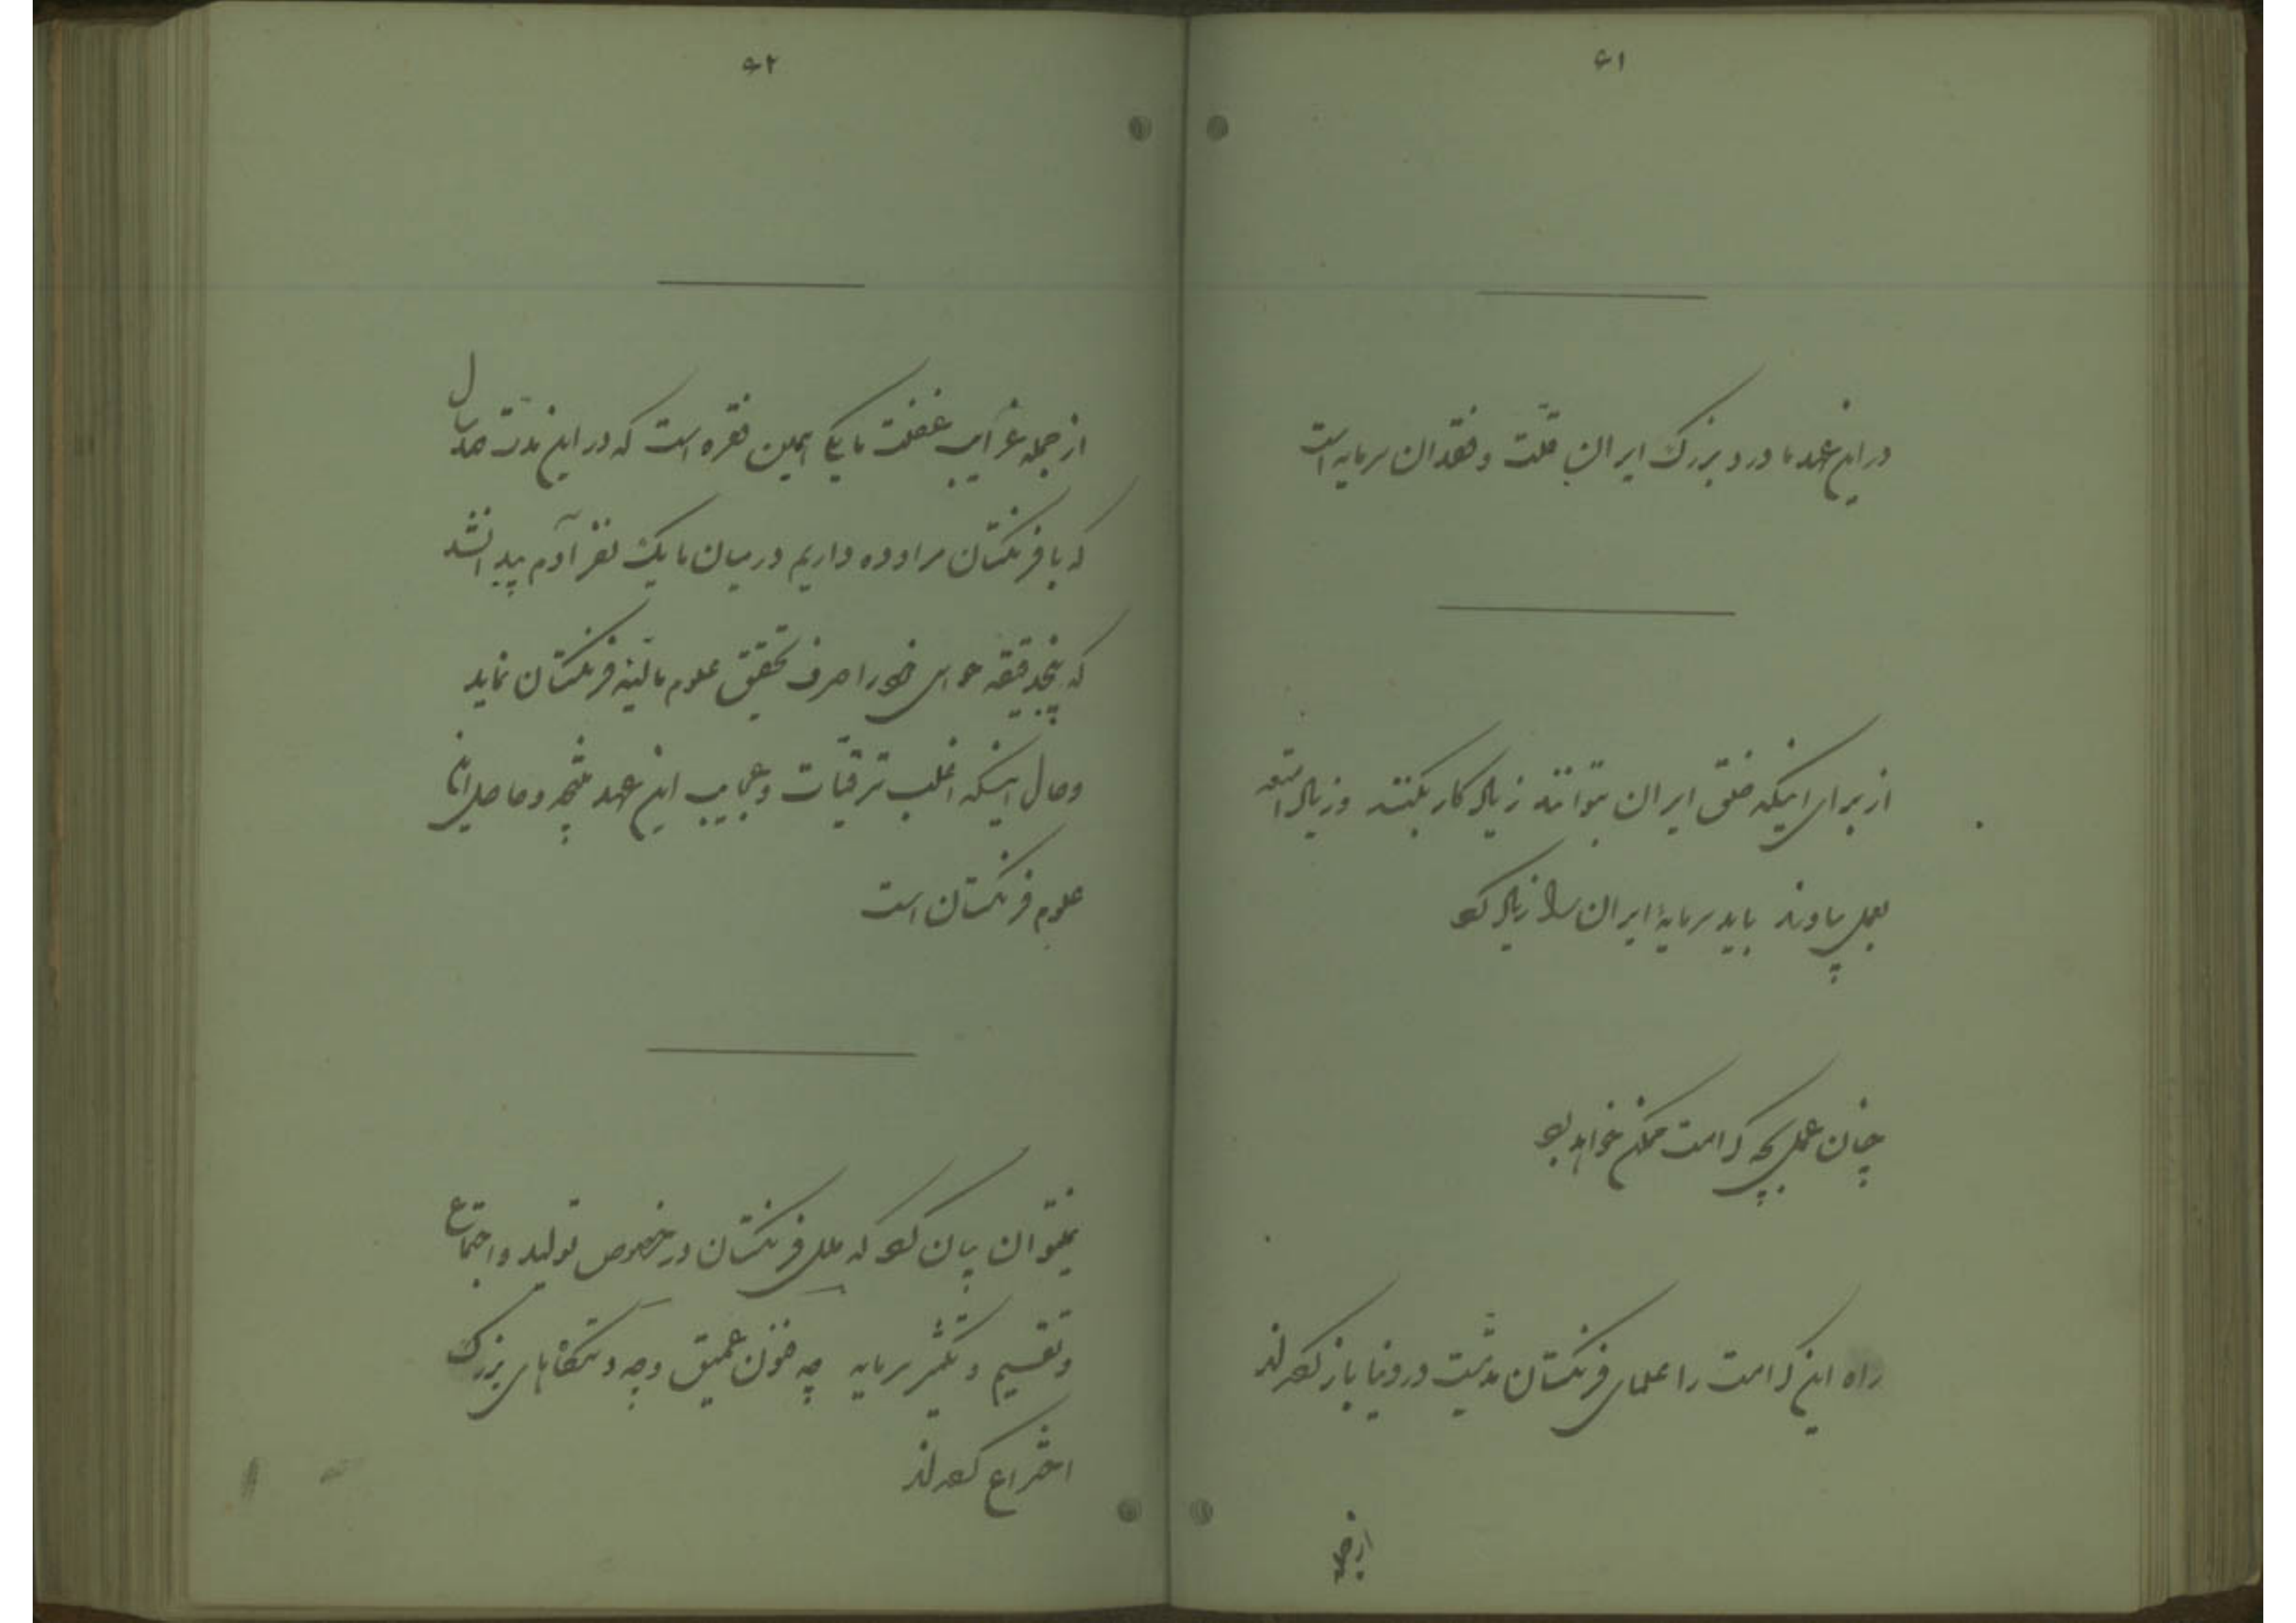 ۶۱
در این عهد ما درد بزرگ ایران قلّت و فقدان سرمایه است
از برای اینکه خلق ایران بتوانند زیاد کار بکنند و زیاد امتعه
بعمل بیاورند باید سرمایهٔ ایران را زیاد کرد
چنان عمل بچه کرامت ممکن خواهد بود
راه این کرامت را علمای فرنگستان مدّتیست در دنیا باز کرده‌اند
از جمله
۶۲
از جمله غرایب غفلت ما یکی همین فقره است که در این مدّت صد سال
که با فرنگستان مراوده داریم در میان ما یک نفر آدم پیدا نشد
که پنجدقیقه حواس خود را صرف تحقیق علوم مالیّهٔ فرنگستان نماید
و حال اینکه اغلب ترقیّات و عجایب این عهد نتیجه و حاصل آن
علوم فرنگستان است
نمیتوان بیان کرد که ملل فرنگستان در خصوص تولید و اجتماع
و تقسیم و تکثیر سرمایه چه فنون عمیق و چه دستگاههای بزرگ
اختراع کرده‌اند